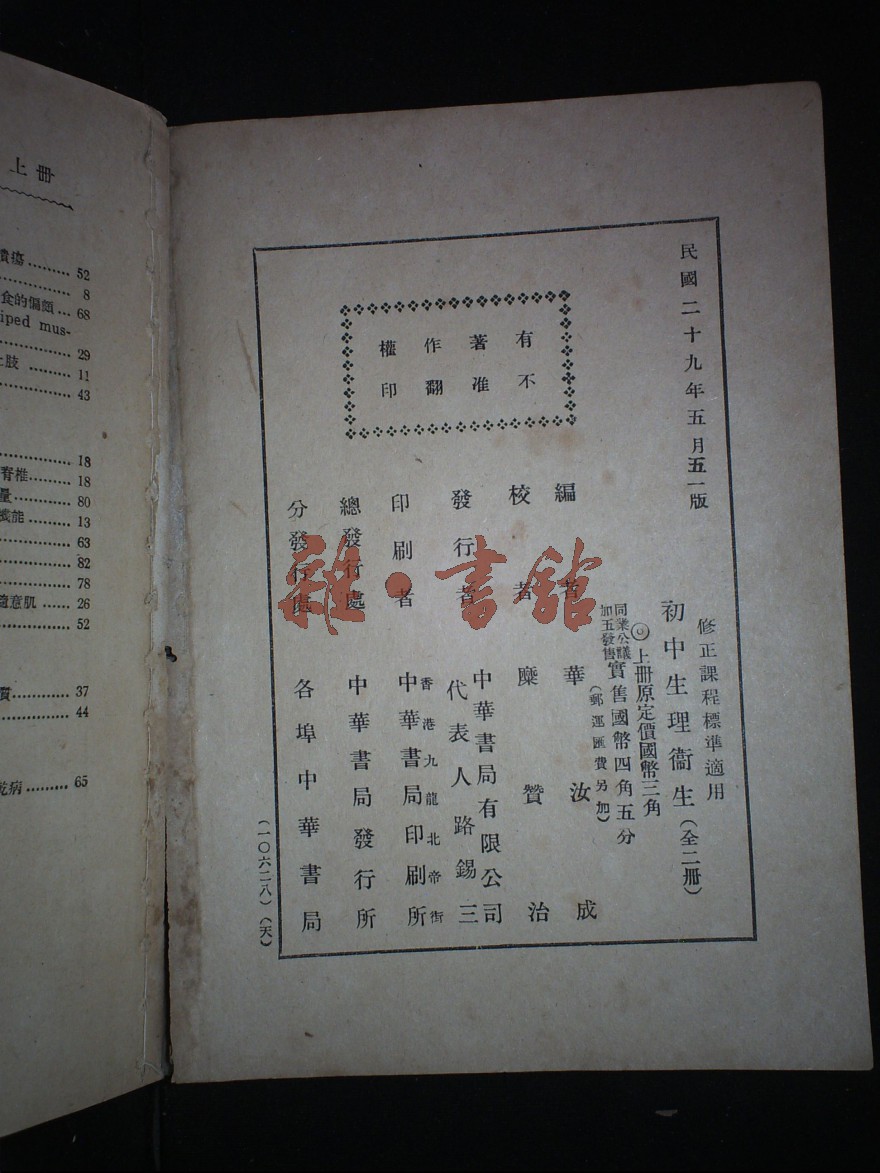 民國二十九年五月五一版
修正課程標準適用
初中生理衞生(全二冊)
上冊原定價國幣三角
同業公議加五發售
實售國幣四角五分
(郵運匯費另加)
有著作權
不准翻印
編者 華汝成
校者 糜贊治
發行者 中華書局有限公司
代表人路錫三
印刷者 香港九龍北帝街
中華書局印刷所
總發行處 中華書局發行所
分發行處 各埠中華書局
(一〇六二八)(天)
雜·書館
上冊
潰瘍 52
8
食的偏頗 68
iped mus-
29
上肢 11
43
18
脊椎 18
量 80
機能 13
63
82
78
隨意肌 26
52
37
44
乾病 65